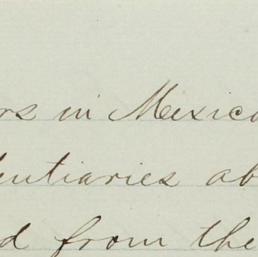 rs in Mexico
entiaries ab
d from the